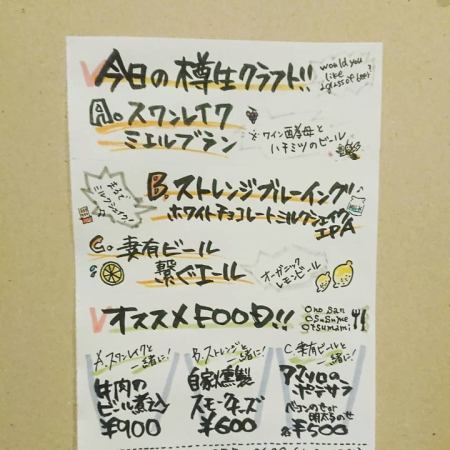 今日の樽生クラフト!!
would you
like
a glass of beer?
A. スワンレイク
ミエルブラン
ワイン酵母と
ハチミツのビール
まるで
ミルクシェイク!
B. ストレンジブルーイング
ホワイトチョコレートミルクシェイク
IPA
MILK
C. 妻有ビール
繋ぐエール
オーガニック
レモンビール
オススメFOOD!!
Ono san
Osusume
Otsumami
A.スワンレイクと
一緒に!
牛肉の
ビール煮込
¥900
B.ストレンジと
一緒に!
自家燻製
スモークチーズ
¥600
C.妻有ビールと
一緒に!
アマリロの
ポテサラ
ベーコンのせor
明太のせ
各¥500